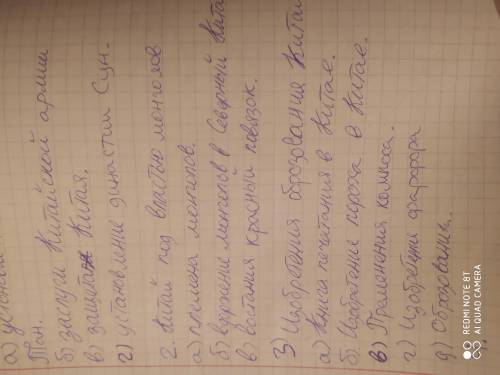 а) успехи
Тан.
б) заслуги Китайской армии
в) защита Китая.
г) установление династии Сун.
2. Китай под властью монголов
а) причина монголов.
б) вторжение монголов в Северный Кита
в) востания красный повязок.
3) Изобретения образования Китая
а) Книга печатания в Китае.
б) Изобретение пороха в Китае.
в) Применения компаса.
г) Изобретение фарфора
д) Образование.
REDMI NOTE 8T
AI QUAD CAMERA